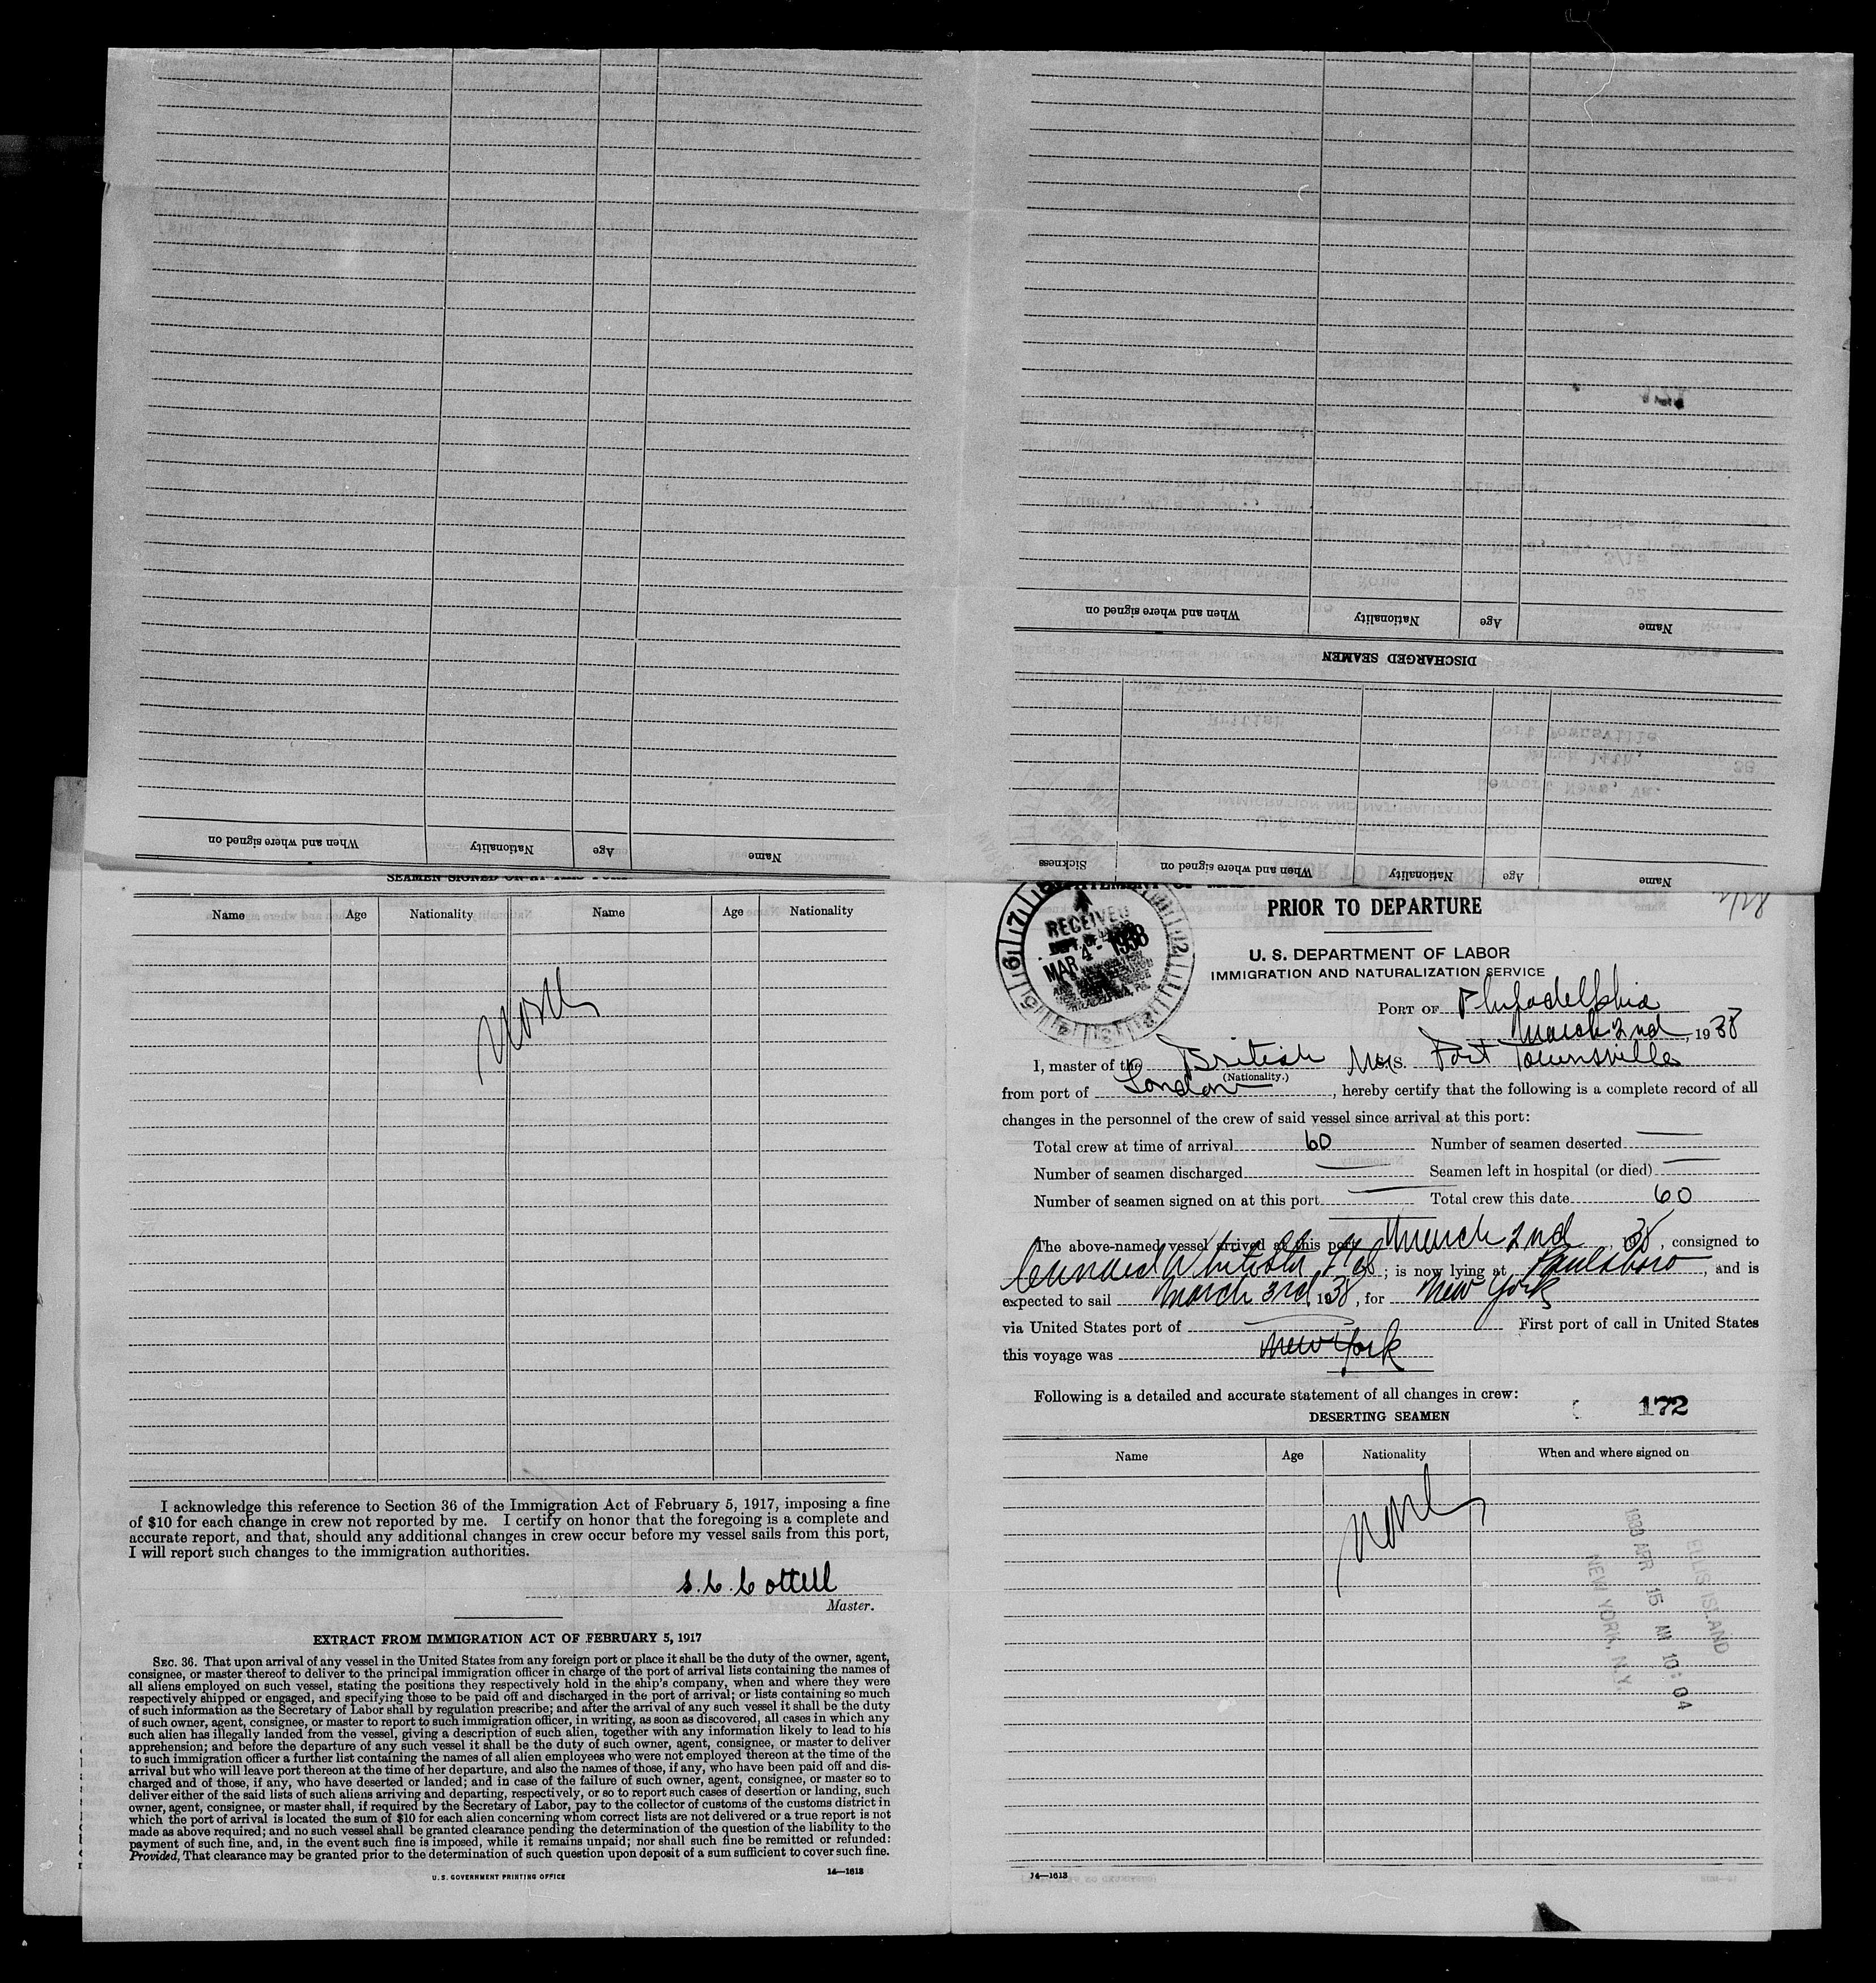 When and where signed on Nationality Age Name
DISCHARGED SEAMEN
Name Age Nationality When and where signed on Sickness
Name Age Nationality When and where signed on
SEAMEN SIGNED ON AT THIS
Name Age Nationality Name Age Nationality
None
I acknowledge this reference to Section 36 of the Immigration Act of February 5, 1917, imposing a fine
of $10 for each change in crew not reported by me. I certify on honor that the foregoing is a complete and
accurate report, and that, should any additional changes in crew occur before my vessel sails from this port,
I will report such changes to the immigration authorities.
S. C. Cottell
Master.
EXTRACT FROM IMMIGRATION ACT OF FEBRUARY 5, 1917
SEC. 36. That upon arrival of any vessel in the United States from any foreign port or place it shall be the duty of the owner, agent,
consignee, or master thereof to deliver to the principal immigration officer in charge of the port of arrival lists containing the names of
all aliens employed on such vessel, stating the positions they respectively hold in the ship's company, when and where they were
respectively shipped or engaged, and specifying those to be paid off and discharged in the port of arrival; or lists containing so much
of such information as the Secretary of Labor shall by regulation prescribe; and after the arrival of any such vessel it shall be the duty
of such owner, agent, consignee, or master to report to such immigration officer, in writing, as soon as discovered, all cases in which any
such alien has illegally landed from the vessel, giving a description of such alien, together with any information likely to lead to his
apprehension; and before the departure of any such vessel it shall be the duty of such owner, agent, consignee, or master to deliver
to such immigration officer a further list containing the names of all alien employees who were not employed thereon at the time of the
arrival but who will leave port thereon at the time of her departure, and also the names of those, if any, who have been paid off and dis-
charged and of those, if any, who have deserted or landed; and in case of the failure of such owner, agent, consignee, or master so to
deliver either of the said lists of such aliens arriving and departing, respectively, or so to report such cases of desertion or landing, such
owner, agent, consignee, or master shall, if required by the Secretary of Labor, pay to the collector of customs of the customs district in
which the port of arrival is located the sum of $10 for each alien concerning whom correct lists are not delivered or a true report is not
made as above required; and no such vessel shall be granted clearance pending the determination of the question of the liability to the
payment of such fine, and, in the event such fine is imposed, while it remains unpaid; nor shall such fine be remitted or refunded:
Provided, That clearance may be granted prior to the determination of such question upon deposit of a sum sufficient to cover such fine.
U.S. GOVERNMENT PRINTING OFFICE 14—1613
RECEIVED
MAR 4- 1938
PHILADELPHIA, PA.
PRIOR TO DEPARTURE
U. S. DEPARTMENT OF LABOR
IMMIGRATION AND NATURALIZATION SERVICE
PORT OF Philadelphia
March 2nd, 1938
I, master of the British M/S. Port Townsville
(Nationality.)
from port of London, hereby certify that the following is a complete record of all
changes in the personnel of the crew of said vessel since arrival at this port:
Total crew at time of arrival 60 Number of seamen deserted —
Number of seamen discharged — Seamen left in hospital (or died) —
Number of seamen signed on at this port — Total crew this date 60
The above-named vessel arrived at this port March 2nd, 1938, consigned to
Cunard White Star Ltd; is now lying at Paulsboro, and is
expected to sail March 3rd, 1938, for New York
via United States port of — First port of call in United States
this voyage was New York
Following is a detailed and accurate statement of all changes in crew:
172
DESERTING SEAMEN
Name Age Nationality When and where signed on
None
ELLIS ISLAND
1938 APR 15 AM 10:04
NEW YORK, N.Y.
14—1613